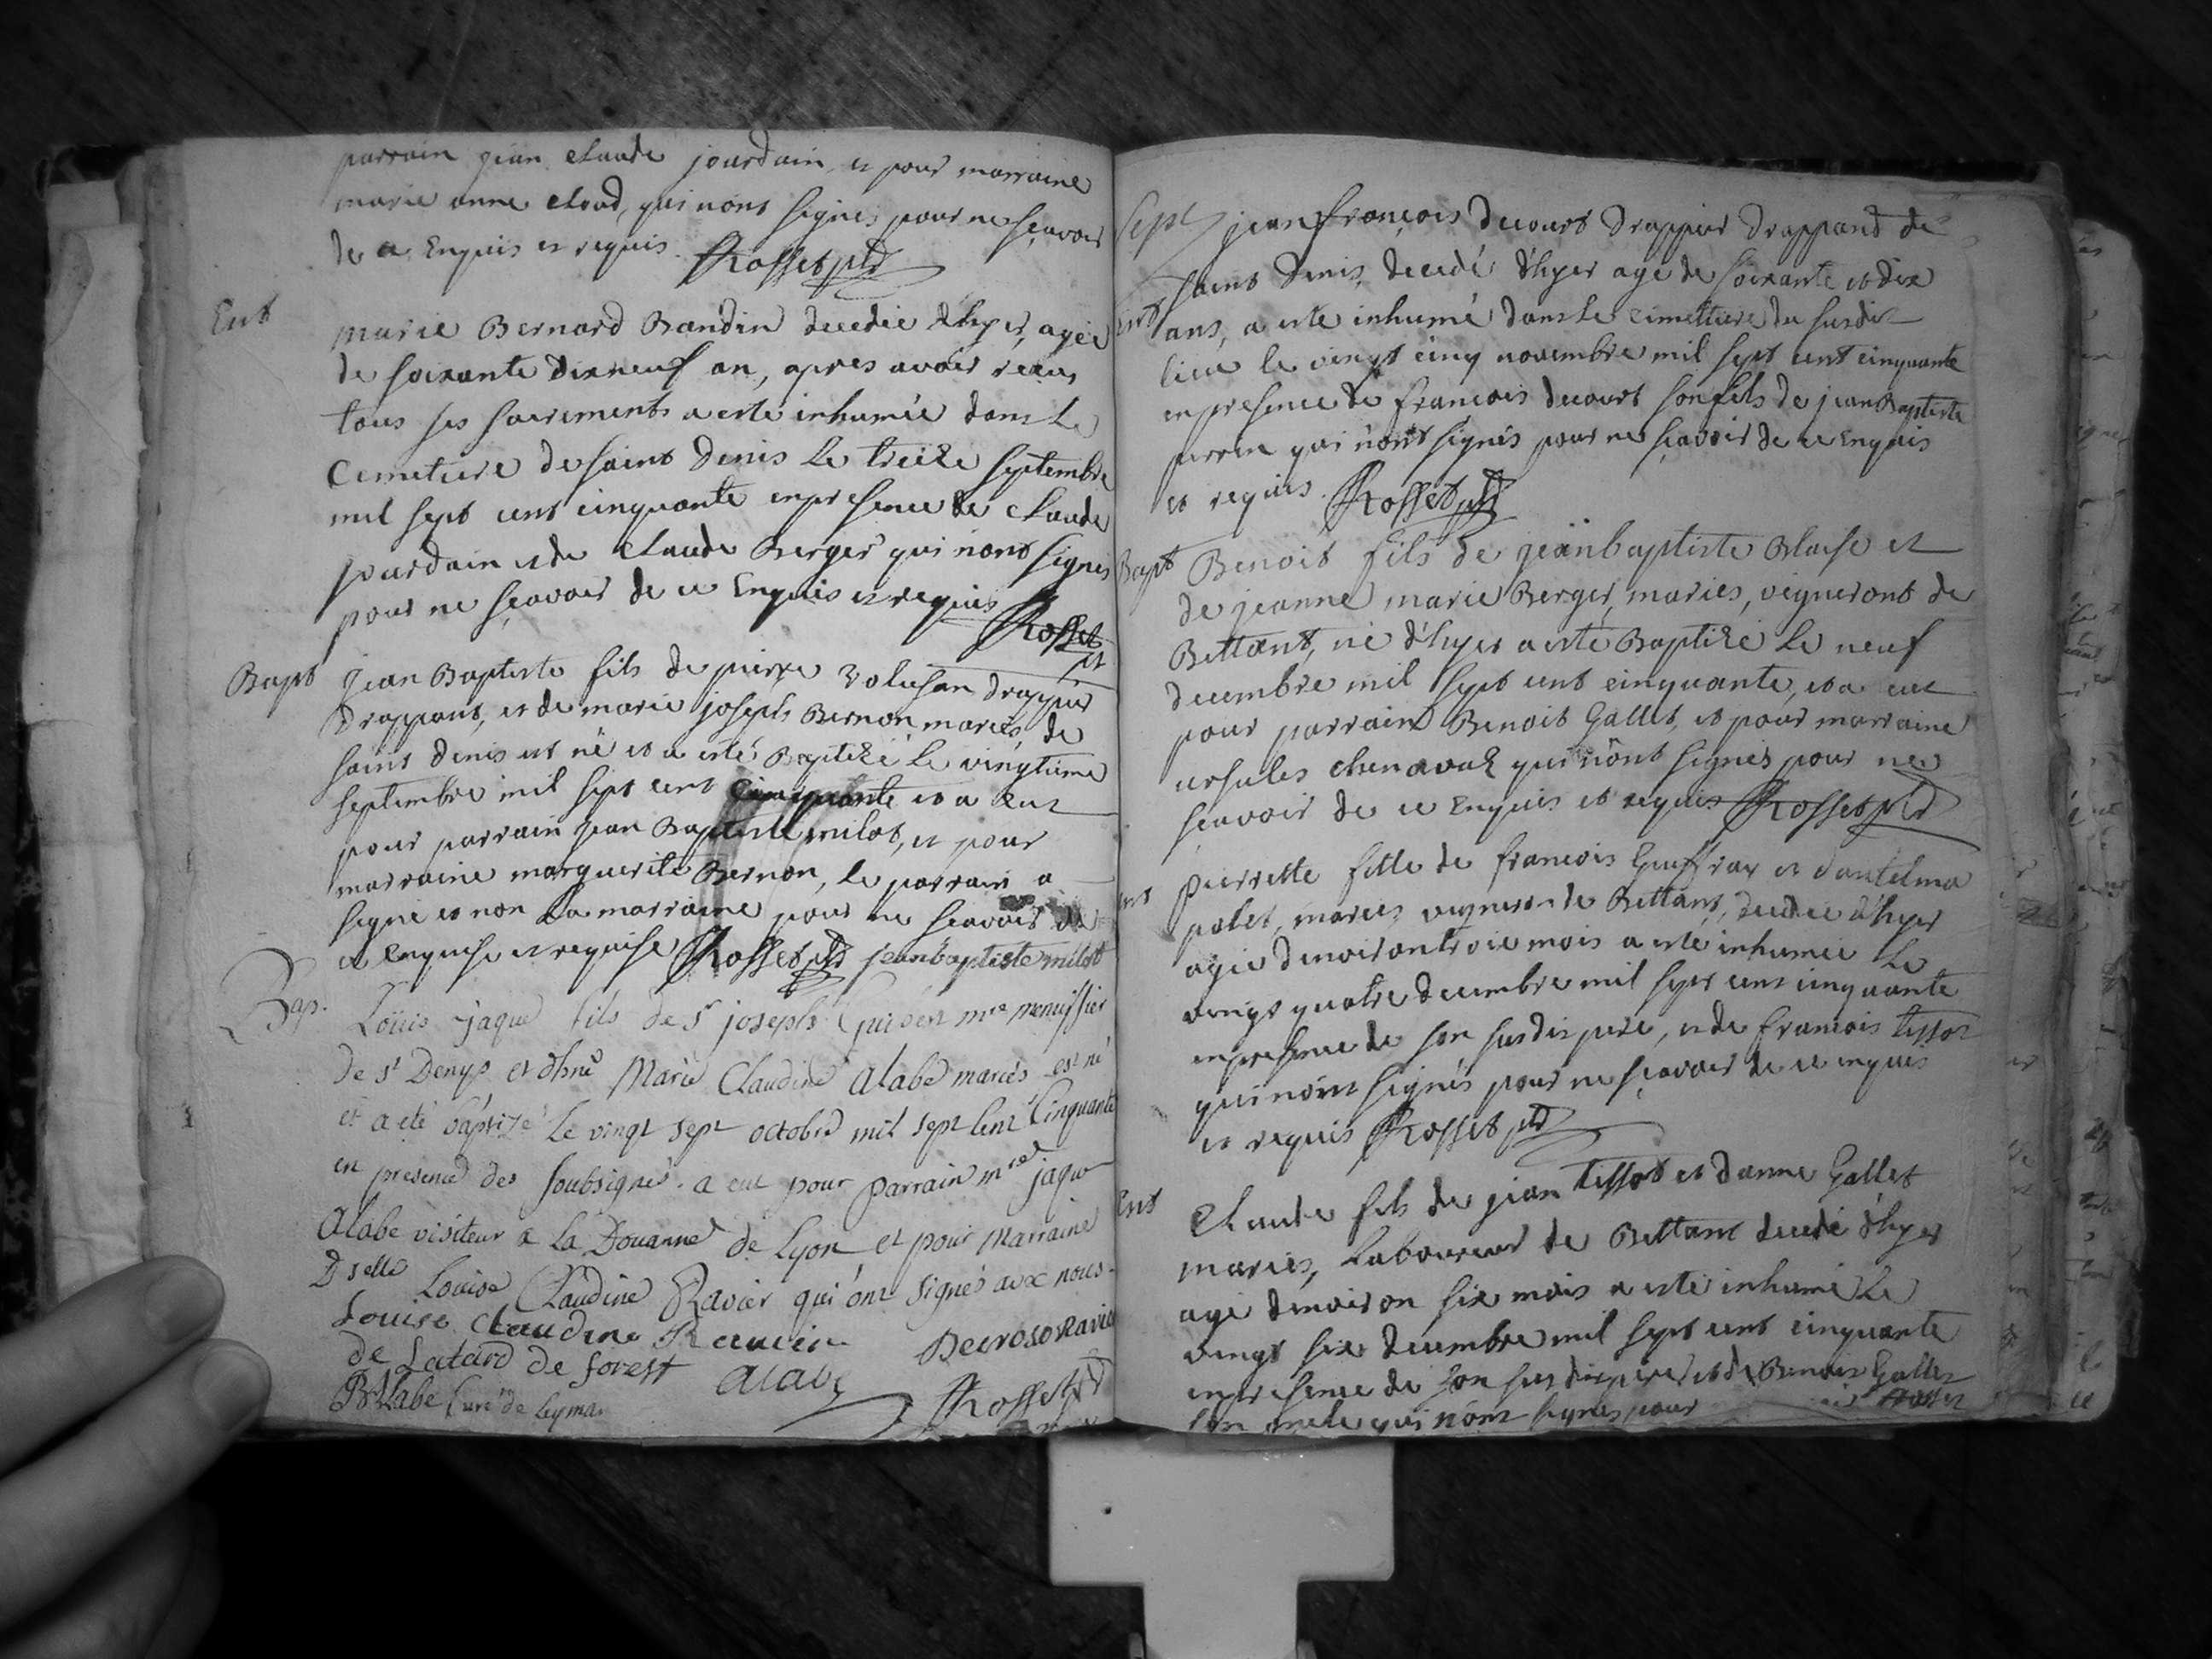 parrain jean claude jourdain, et pour marraine
marie anne cloud, qui nont signés pour ne sçavoir
de ce Enquis et requis. Rosset
Ent
marie Bernard Bandin decedée d'hyer, agée
de soixante dixneuf an, apres avoir recus
tous ses sacrements a esté inhumée dans le
Cemetiere de saint Denis le treize septembre
mil sept cent cinquante enpresence de claude
jourdain et de claude Berger qui nont signés
pour ne sçavoir de ce Enquis et requis
Rosset
Bapt
Jean Baptiste fils de pierre volusan drappier
drappant, et de marie joseph Bernon mariés, de
saint denis est né et a esté Baptizé le vingtieme
septembre mil sept cent cinquante et a eut
pour parrain Jean Baptiste milot, et pour
marraine marguerite Bernon, le parrain a
signé et non la marraine pour ne scavoir de
ce enquise et requise Rosset jeanbaptiste milot
Bap.
Loüis jaque fils de Sr joseph mre menuissier
de st Denys et Marie Claudine Alabe mariés est né
et a eté baptizé Le vingt sept octobre mil sept Cent Cinquante
en presence des soubsignés. a eut pour parrain mre jaque
Alabe visiteur a la Douanne de Lyon et pour Marraine
Dselle Louise Claudine Ravier qui ont signés avec nous
Louise Claudine Ravier Decroso Ravier
de Latard de forest Alabe
Alabe Curé de Leyma Rosset
Sept
jean françois decourt Drappier Drappand de
saint Denis, decedé d'hyer agé de soixante et dix
Ent
ans, a esté inhumé dans le cimettiere du susdit
lieu le vingt cinq novembre mil sept cent cinquante
enpresence de francois decourt son fils de jean Baptiste
perrin qui nont signés pour ne sçavoir de ce Enquis
et requis. Rosset
Bapt
Benoit fils de jeanbaptiste Blaise et
de jeanne marie Berger, mariés, vigneront de
Bettant, né d'hyer a esté Baptizé le neuf
decembre mil sept cent cinquante, et a eut
pour parrain Benoit Gallet, et pour marraine
ursules chenavaz qui nont signés pour ne
sçavoir de ce Enquis et requis Rosset
Ent
pierrette fille de francois Geuffray et dantelma
polet, mariés vigneron de Bettant, decedée d'hyer
agée denviron trois mois a esté inhumée le
vingt quatre decembre mil sept cent cinquante
enpresence de son susdit pere, et de francois tissot
qui nont signés pour ne sçavoir de ce enquis
et requis Rosset
Ent
Claude fils de jean tissot et danne Gallet
mariés, Laboureur de Bettant decedé d'hyer
agé denviron six mois a esté inhumé le
vingt six decembre mil sept cent cinquante
enpresence de son susdit pere, et de Benoit Gallet
son oncle qui nont signés pour